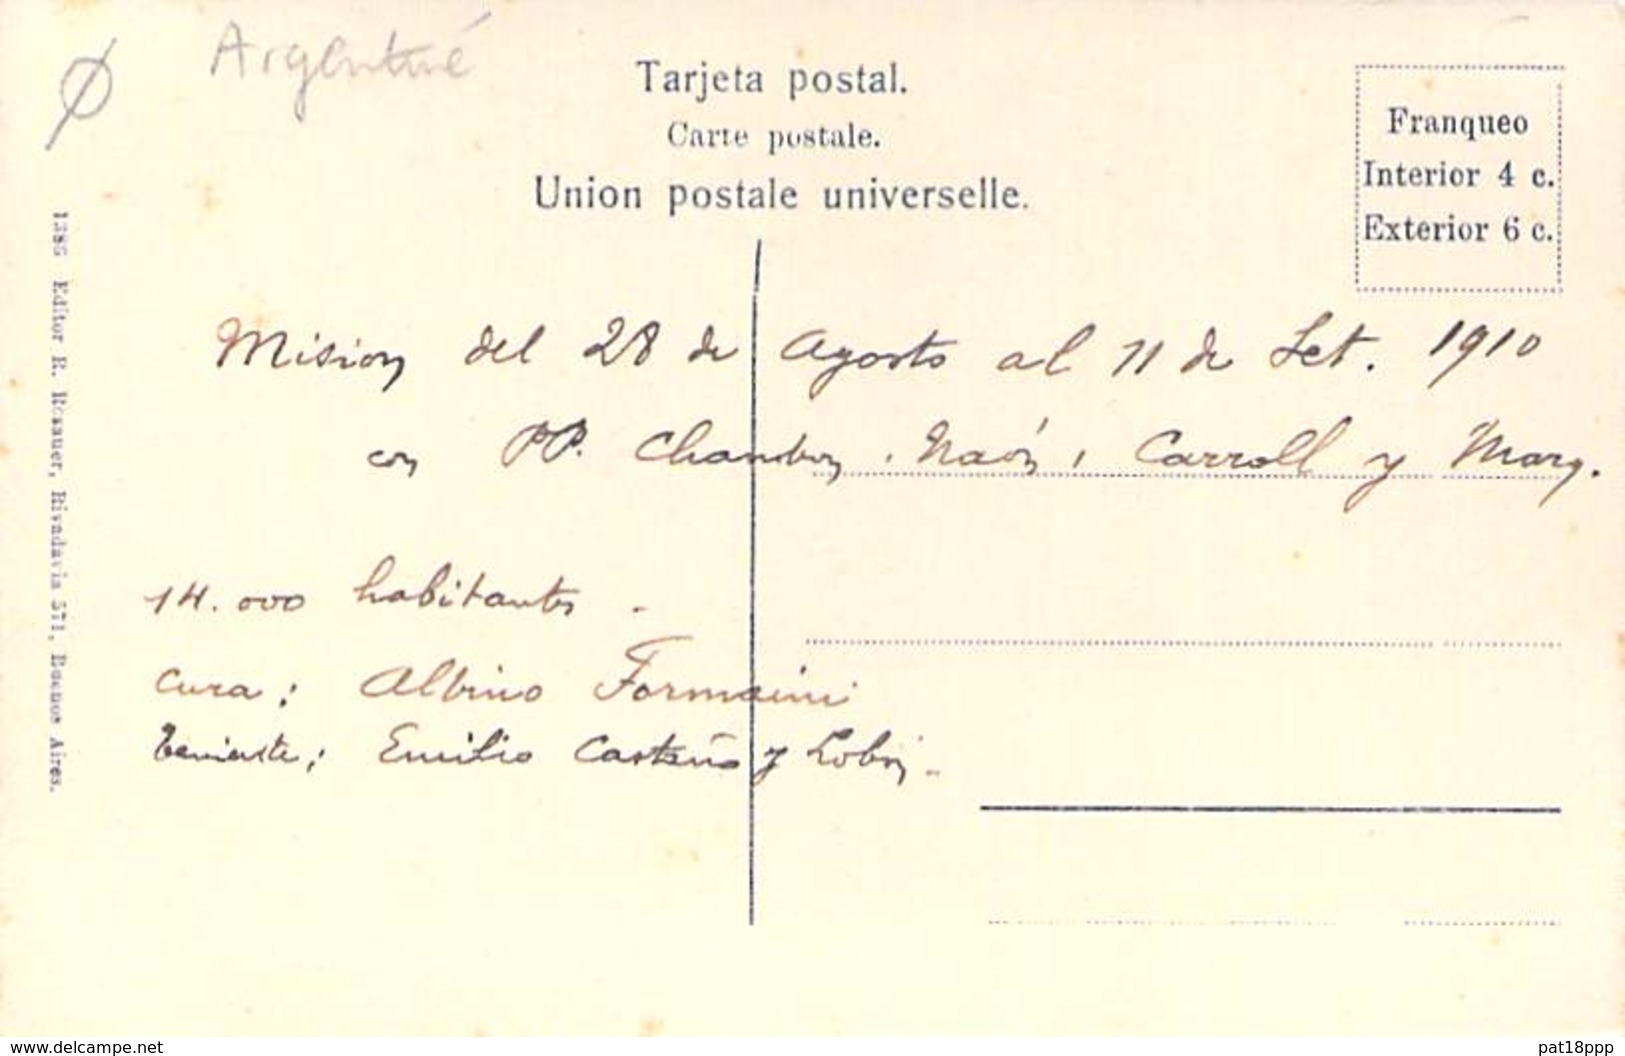 Argentine
Tarjeta postal.
Carte postale.
Union postale universelle.
Franqueo
Interior 4 c.
Exterior 6 c.
1386 Editor R. Rosauer, Rivadavia 571, Buenos Aires.
Mision del 28 de Agosto al 11 de Set. 1910
con PP. Chambon, Naón, Carroll y Mary.
14.000 habitantes.
Cura: Albino Formaini
Teniente: Emilio Casteño y
www.delcampe.net
pat18ppp